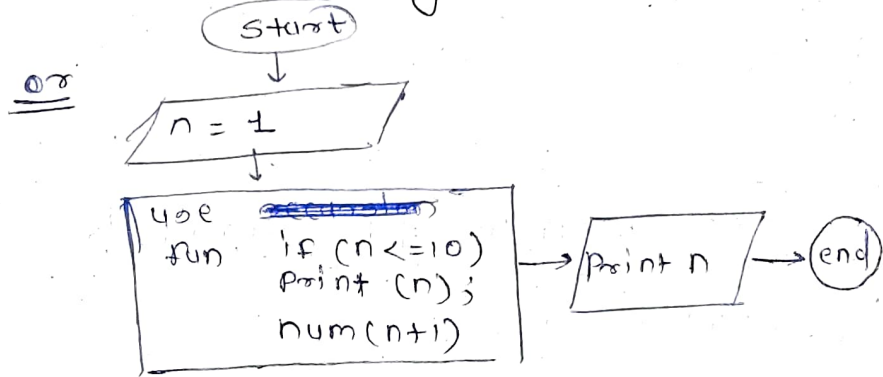 Start
or
n = 1
use
fun if (n<=10)
Print (n);
num(n+1)
Print n
end